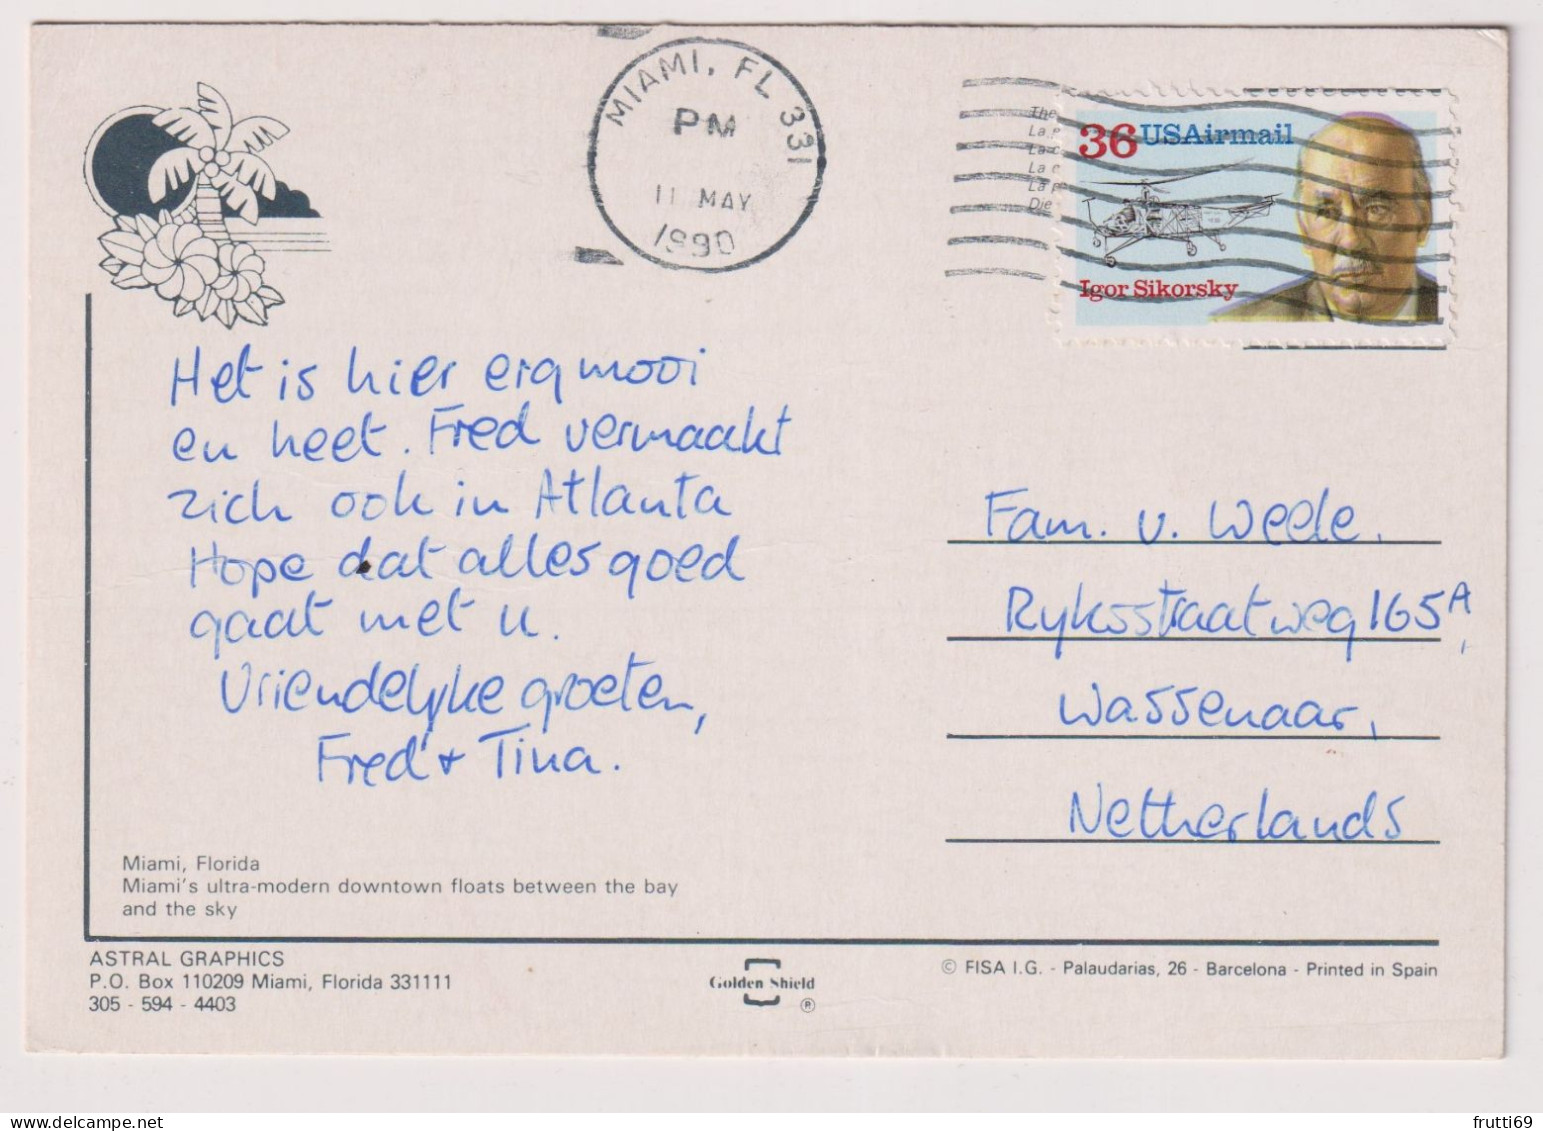 MIAMI, FL 331
PM
11 MAY
1990
The
La
La
La
La
Die
36 USAirmail
Igor Sikorsky
Het is hier erg mooi
en heet. Fred vermaakt
zich ook in Atlanta
Hope dat alles goed
gaat met u.
Vriendelyke groeten,
Fred + Tina.
Fam. v. Weele.
Ryksstraatweg 165A,
Wassenaar,
Netherlands
Miami, Florida
Miami's ultra-modern downtown floats between the bay
and the sky
ASTRAL GRAPHICS
P.O. Box 110209 Miami, Florida 331111
305 - 594 - 4403
Golden Shield
®
© FISA I.G. - Palaudarias, 26 - Barcelona - Printed in Spain
frutti69